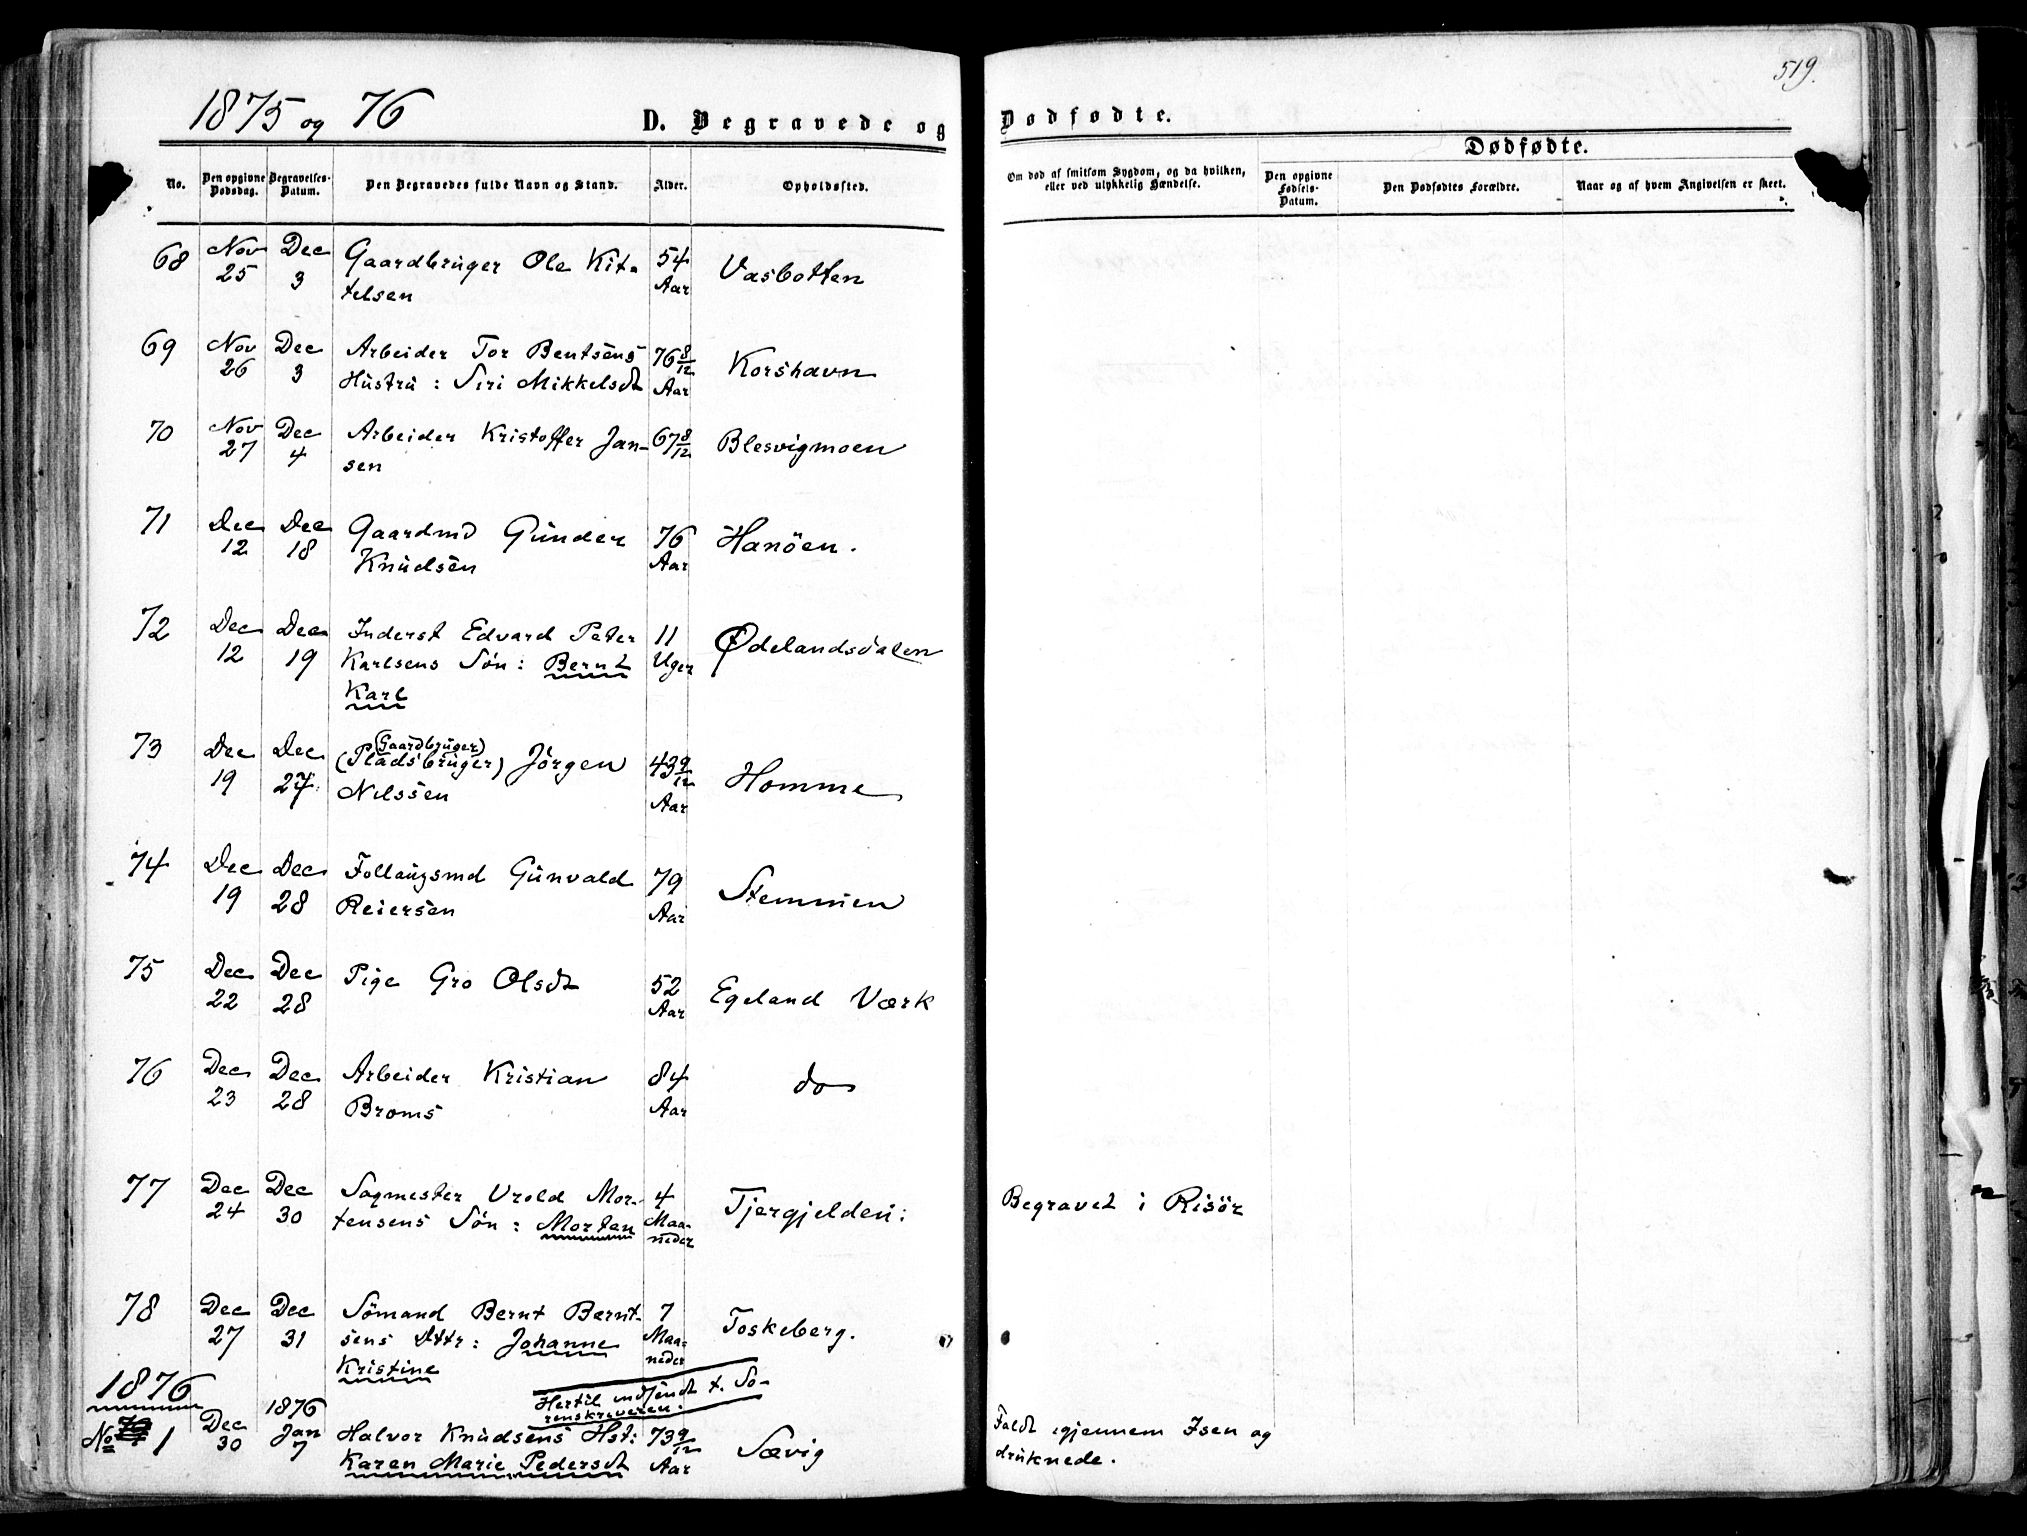 519.
1875 og 76
D. Begravede og Dødfødte.
Dødfødte.
No.
Den opgivne Dødsdag.
Begravelses-Datum.
Den Begravedes fulde Navn og Stand.
Alder.
Opholdssted.
Om død af smitsom Sygdom, og da hvilken, eller ved ulykkelig Hændelse.
Den opgivne Fødsels-Datum.
Den Dødfødtes Forældre.
Naar og af hvem Angivelsen er skeet.
68 Nov 25 Dec 3 Gaardbruger Ole Kit- 54 Aar Vasbotten
telsen
69 Nov 26 Dec 3 Arbeider Tor Bentsens 76 8/12 Aar Korshavn
Hustru : Siri Mikkelsdt
70 Nov 27 Dec 4 Arbeider Kristoffer Jan- 67 8/12 Blesvigmoen
sen
71 Dec 12 Dec 18 Gaardmd Gunder 76 Aar Hanöen.
Knudsen
72 Dec 12 Dec 19 Inderst Edvard Peter 11 Uger Ødelandsdalen
Karlsens Søn : Bernt
Karl
73 Dec 19 Dec 27 (Gaardbruger)
(Pladsbruger) Jörgen 43 9/12 Aar Homme
Nilssen
74 Dec 19 Dec 28 Follaugsmd Gunvald 79 Aar Stemmen
Reiersen
75 Dec 22 Dec 28 Pige Gro Olsdt 52 Aar Egeland Værk
76 Dec 23 Dec 28 Arbeider Kristian 84 Aar do
Broms
77 Dec 24 Dec 30 Sagmester Vrold Mor- 4 Maaneder Tjergjelden: Begravet i Risör
tensens Sön : Morten
78 Dec 27 Dec 31 Sömand Bernt Bernt- 7 Maaneder Toskeberg.
sens Dttr : Johanne
Kristine
1876
Hertil indsendt t. So-
renskriveren.
No 1 Dec 30 1876 Jan 7 Halvor Knudsens Hst: 73 9/12 Aar Sævig Faldt igjennem Isen og
Karen Marie Pedersdt druknede.